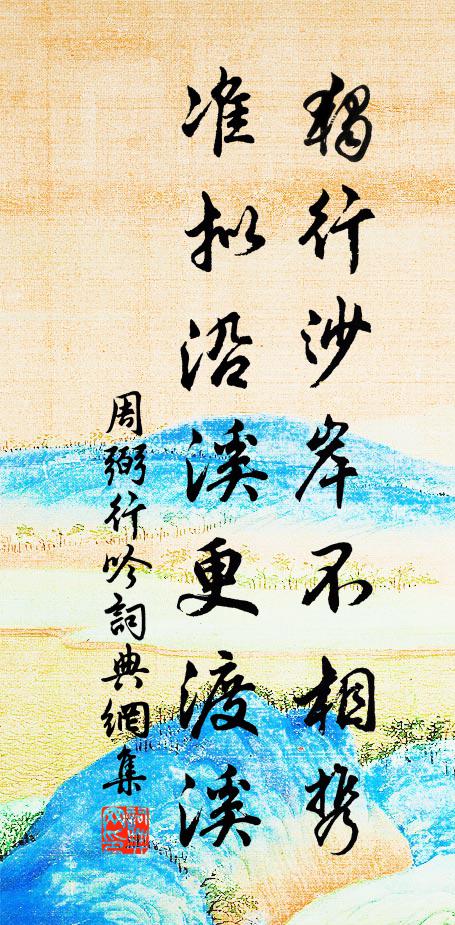 獨行沙岸不相携
准拟沿溪更渡溪
周弼行吟詞典網集